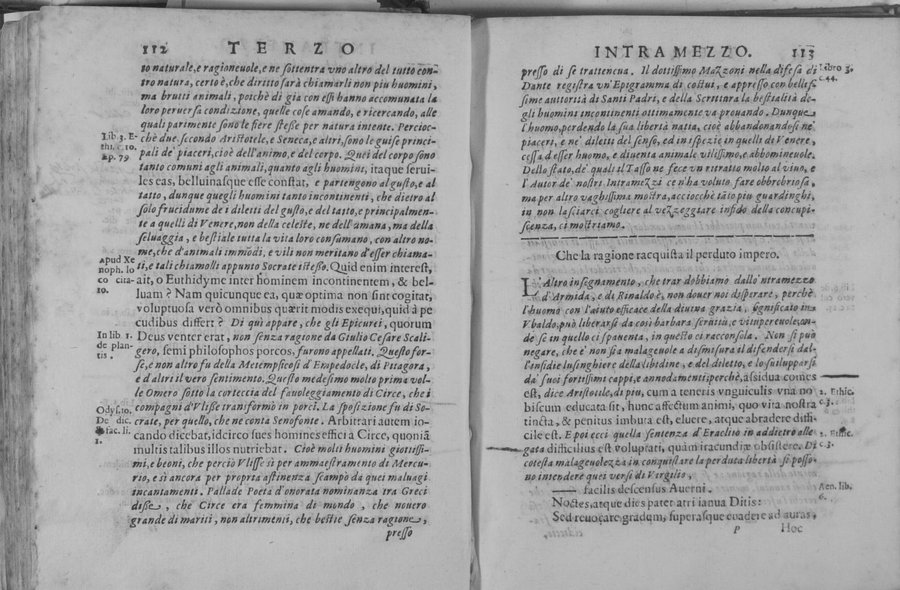 112 TERZO
to naturale, e ragioneuole, e ne sottentra vno altro del tutto con-
tro natura, certo è, che diritto sarà chiamarli non piu huomini,
ma brutti animali, poichè di già con essi hanno accomunata la
loro peruersa condizione, quelle cose amando, e ricercando, alle
quali parimente sono le fiere stesse per natura intente. Percioc-
chè due secondo Aristotele, e Seneca, e altri, sono le guise princi-
pali de' piaceri, cioè dell'animo, e del corpo. Quei del corpo sono
tanto comuni agli animali, quanto agli huomini, itaque serui-
les eas, belluinasque esse constat, e partengono al gusto, e al
tatto, dunque quegli huomini tanto incontinenti, che dietro al
solo frucidume de i diletti del gusto, e del tatto, e principalmen-
te a quelli di Venere, non della celeste, ne dell'amana, ma della
seluaggia, e bestiale tutta la vita loro consumano, con altro no-
me, che d'animali immōdi, e vili non meritano d'esser chiama-
ti, e tali chiamolli appunto Socrate istesso. Quid enim interest,
ait, o Euthydime inter hominem incontinentem, & bel-
luam? Nam quicunque ea, quæ optima non sint cogitat,
voluptuosa verò omnibus quærit modis exequi, quid à pe
cudibus differt? Di quì appare, che gli Epicurei, quorum
Deus venter erat, non senza ragione da Giulio Cesare Scali-
gero, semi philosophos porcos, furono appellati. Questo for-
se, e non altro fu della Metempsicosi d'Empedocle, di Pitagora,
e d'altri il vero sentimento. Questo medesimo molto prima vol-
le Omero sotto la corteccia del fauoleggiamento di Circe, che i
compagni d'Vlisse transformò in porci. La sposizione fu di So-
crate, per quello, che ne conta Senofonte. Arbitrari autem io-
cando dicebat, idcirco sues homines effici à Circe, quoniā
multis talibus illos nutriebat. Cioè molti huomini giottissi-
mi, e beoni, che perciò Vlisse sì per ammaestramento di Mercu-
rio, e sì ancor per propria astinenza scampò da quei maluagi
incantamenti. Pallade Poeta d'onorata nominanza tra Greci
disse, che Circe era femmina di mondo, che nouero
grande di mariti, non altrimenti, che bestie senza ragione,
presso
Lib. 3. E-
thi. c. 10.
Ep. 79
Apud Xe
noph. lo
co cita-
to.
In lib. 1.
de plan-
tis.
Odyss. 10.
De dic.
& fac. li.
1.
INTRAMEZZO. 113
presso di se trattenea. Il dottissimo Mazzoni nella difesa di
Dante registra vn'Epigramma di costui, e appresso con bellis-
sime auttorità di Santi Padri, e della Scrittura la bestialità de-
gli huomini incontinenti ottimamente va prouando. Dunque
l'huomo, perdendo la sua libertà natia, cioè abbandonandosi ne'
piaceri, e ne' diletti del senso, ed in ispezie in quelli di Venere,
cessa d'esser huomo, e diuenta animale vilissimo, e abbomineuole.
Dello stato, de' quali il Tasso ne fece vn ritratto molto al viuo, e
l'Autor de' nostri Intramezzi ce n'ha voluto fare obbrobriosa,
ma per altro vaghissima mostra, acciocchè tāto piu guardinghi,
in non lasciarci cogliere al vezzeggiare infido della concupi-
scenza, ci mostriamo.
Che la ragione racquista il perduto impero.
L'Altro insegnamento, che trar dobbiamo dallo'ntramezzo
d'Armida, e di Rinaldo è, non douer noi disperare, perchè
l'huomo con l'aiuto efficace della diuina grazia, significato in
Vbaldo, può liberarsi da così barbara seruitù, e vitupereuole, on-
de se in quello ci spauenta, in questo ci racconsola. Non si può
negare, che è non sia malageuole a dismisura il difendersi dal-
l'insidie lusinghiere della libidine, e del diletto, e lo suilupparsi
da' suoi fortissimi cappi, e annodamenti perchè, assidua comes
est, dice Aristotile, di piu, cum a teneris vnguiculis vna no
biscum educata sit, hunc affectum animi, quo vita nostra
tincta, & penitus imbuta est, eluere, atque abradere diffi-
cile est. E poi ecci quella sentenza d'Eraclito in addietro alle
gata difficilius est voluptati, quàm iracundiæ obsistere. Di
cotesta malageuolezza in conquistare la perduta libertà si posso-
no intendere quei versi di Virgilio,
facilis descensus Auerni.
Noctes, atque dies patet atri ianua Ditis:
Sed reuocare gradum, superasque euadere ad auras,
P Hoc
Libro 3.
c. 44.
2. Ethic.
c. 3.
2. Ethic.
c. 3.
Aen. lib.
6.